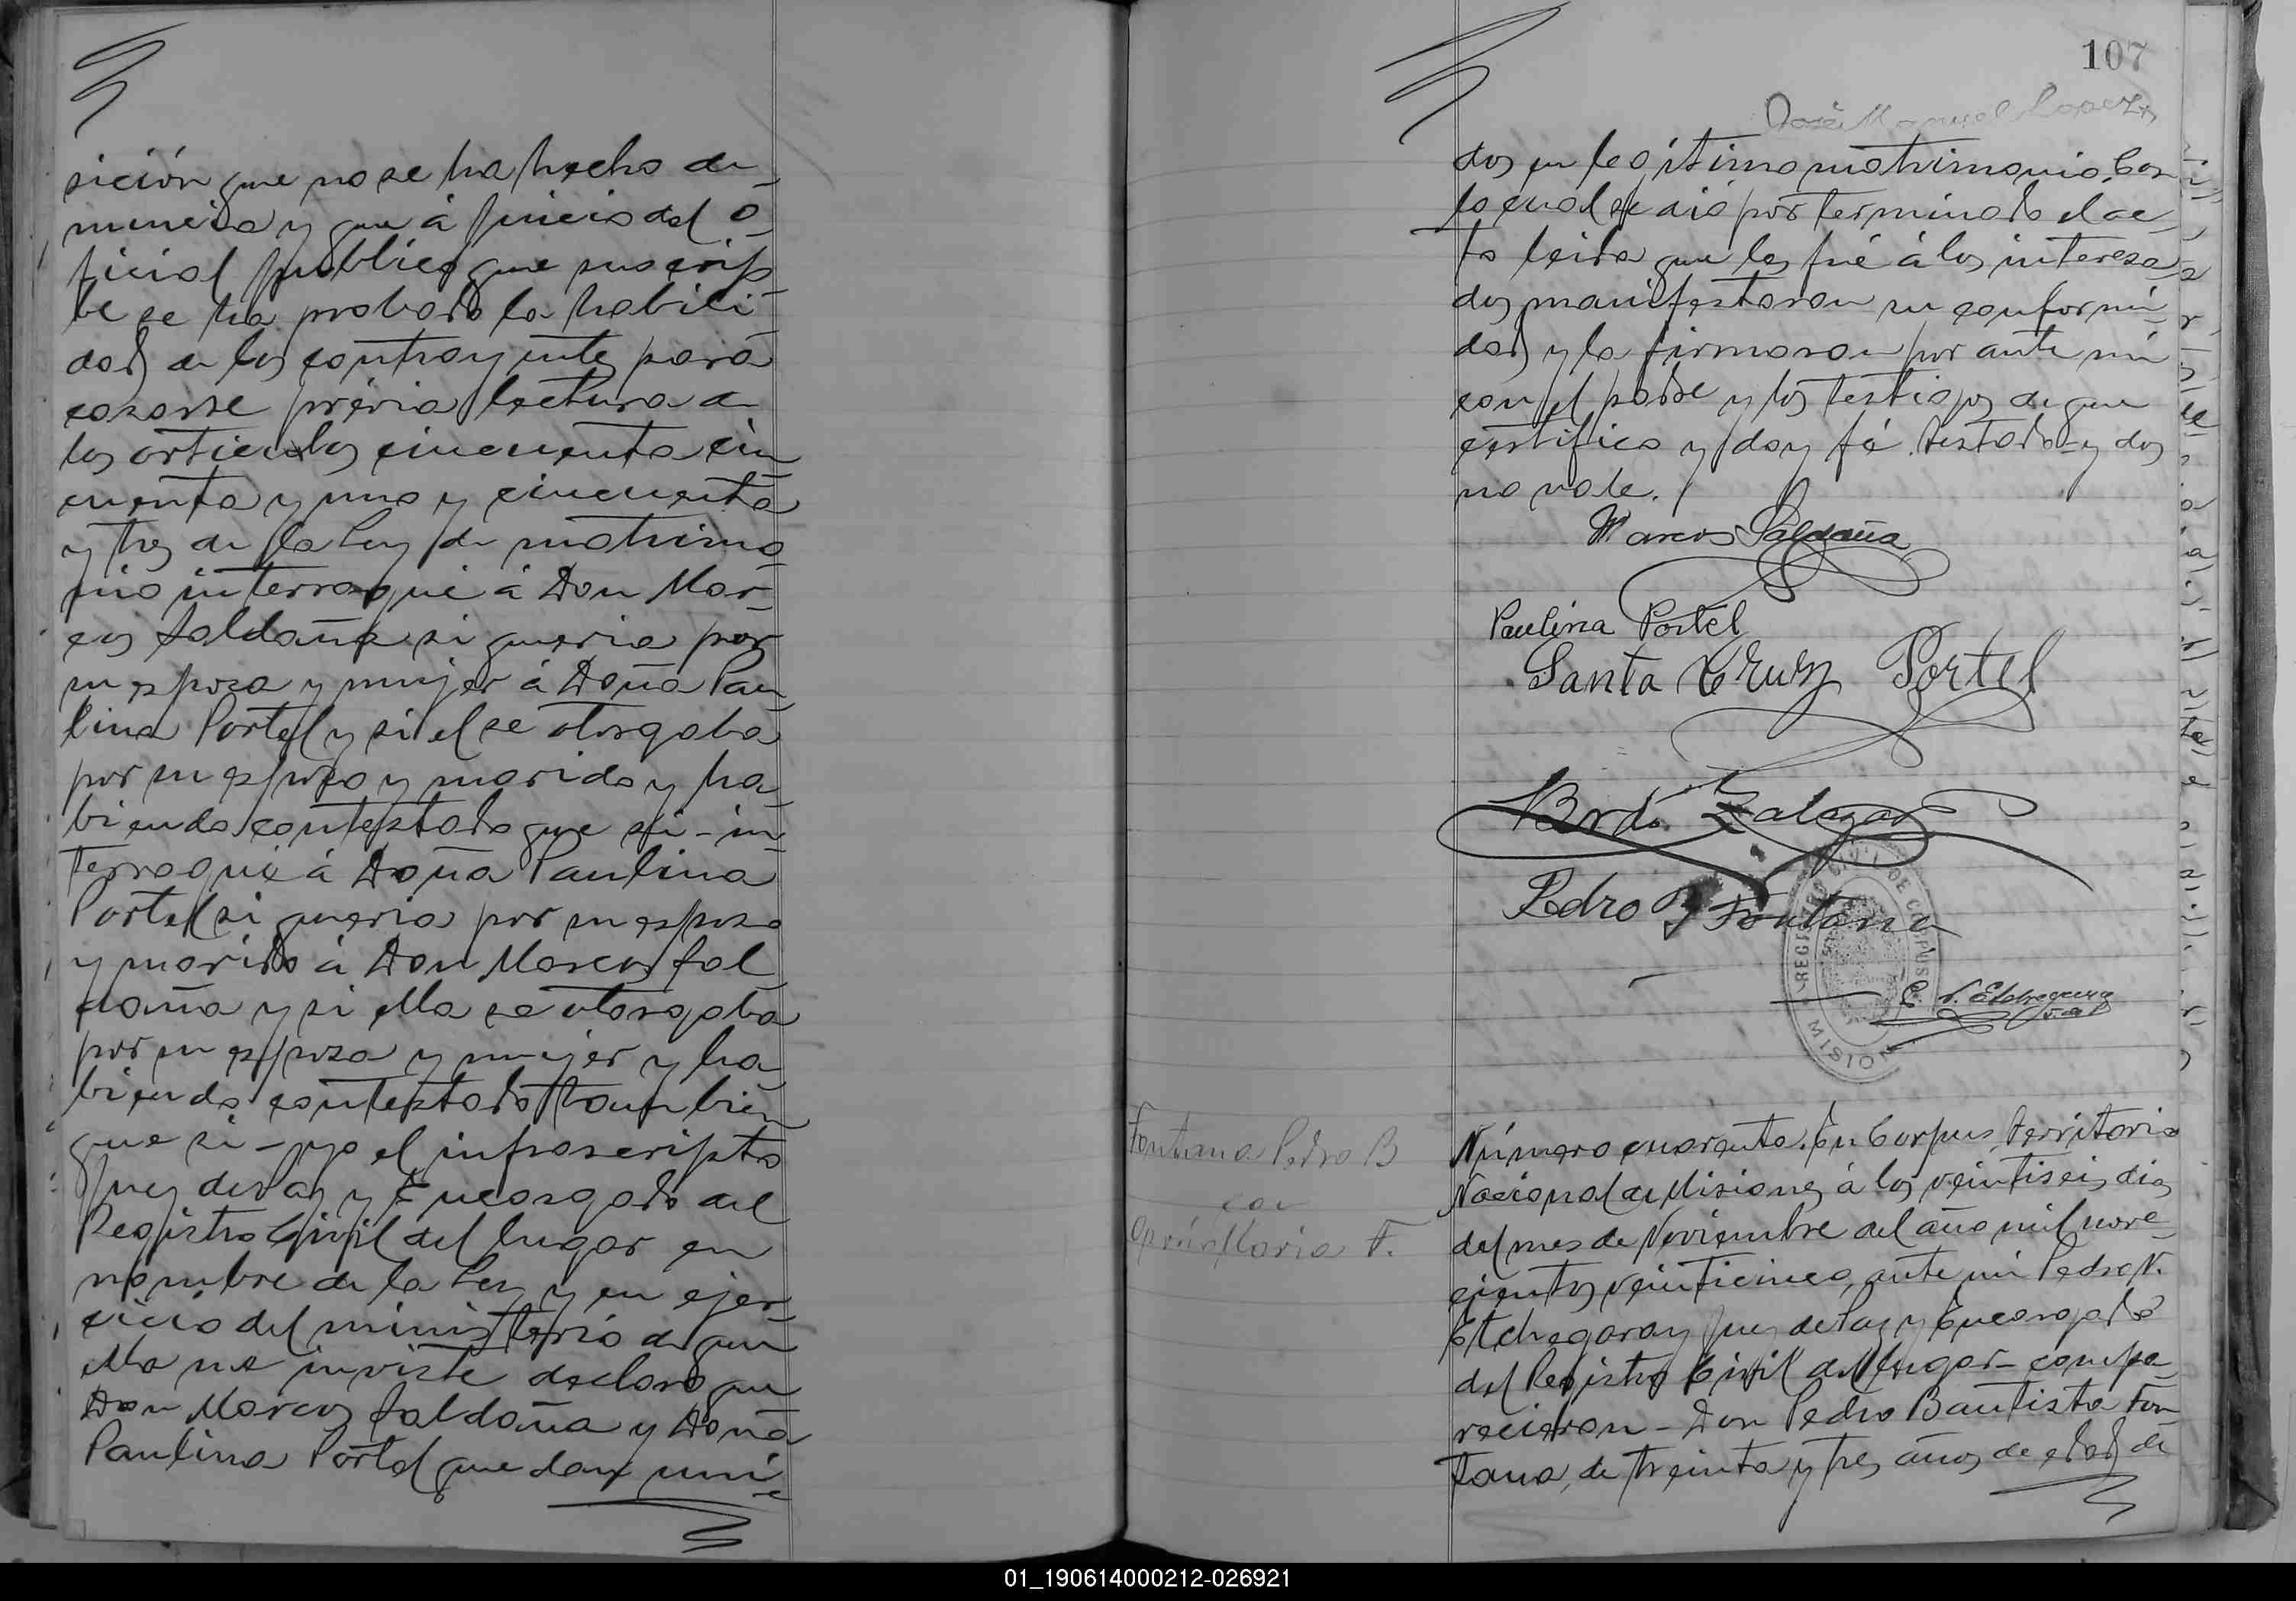 sición que no se ha hecho de
nuncia y que á juicio del o
ficial público que suscrip
be se ha probado la habili
dad de los contrayentes para
casarse prévia lectura de
los articulos cincuenta cin
cuenta y uno y cincuenta
y tres de la Ley de matrimo
nio interrogué á Don Mar-
cos Saldaña si queria por
su esposa y mujer á Doña Pau
lina Portel y si el se otorgaba
por su esposo y marido y ha
biendo contestado que si - in
terrogué á Doña Paulina
Portel si queria por su esposo
y marido á Don Marcos Sal
daña y si ella se otorgaba
por su esposa y mujer y ha
biendo contestado tambien
que si - yo el infrascripto
Juez de Paz y Encargado del
Registro Civil del lugar en
nombre de la Ley y en ejer
cicio del ministerio de que
ella me inviste declaro que
Don Marcos Saldaña y Doña
Paulina Portel quedan uni-
107
José Manuel Lopez
dos en legitimo matrimonio. Con
lo cual se dió por terminado el ac
to leida que les fué á los interesa
dos manifestaron su conformi
dad y la firmaron por ante mi
con el padre y los testigos de que
certifico y doy fé. Testado - y dos
no vale.
Marcos Saldaña
Paulina Portel
Santa Cruz Portel
Brdo. Zalazar
Pedro B Fontana
REGISTRO CIVIL DE CORPUS
MISIONES
P. N. Etchegaray
Fontana Pedro B
con
Maria F.
Número cuarenta. En Corpus Territorio
Nacional de Misiones á los veintiseis dias
del mes de Noviembre del año mil nove
cientos veinticinco, ante mi Pedro N.
Etchegaray Juez de Paz y Encargado
del Registro Civil del lugar - compa
recieron - Don Pedro Bautista Fon
tana, de treinta y tres años de edad de
01_190614000212-026921